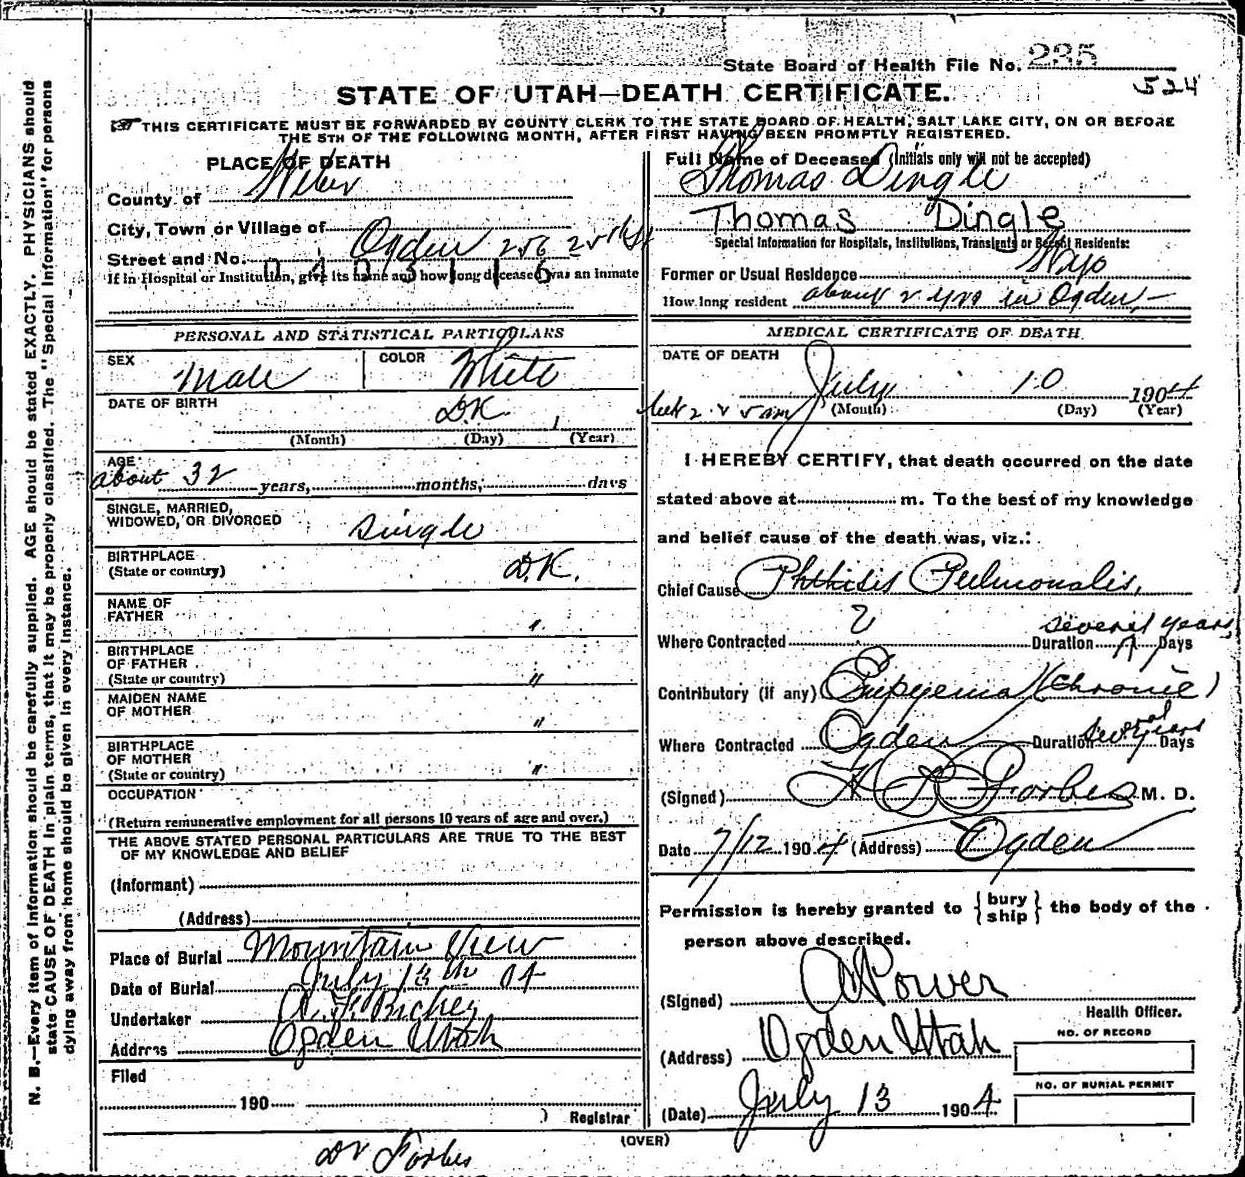 State Board of Health File No. 235
524
STATE OF UTAH—DEATH CERTIFICATE.
THIS CERTIFICATE MUST BE FORWARDED BY COUNTY CLERK TO THE STATE BOARD OF HEALTH, SALT LAKE CITY, ON OR BEFORE
THE 5TH OF THE FOLLOWING MONTH, AFTER FIRST HAVING BEEN PROMPTLY REGISTERED.
PLACE OF DEATH
County of Weber
City, Town or Village of Ogden
Street and No. 256 25th St
If in Hospital or Institution, give its name and how long deceased was an inmate
0 4 2 3 1 1 6
Full Name of Deceased (Initials only will not be accepted)
Thomas Dingle
Thomas Dingle
Special Information for Hospitals, Institutions, Transients or Recent Residents:
Former or Usual Residence Wyo
How long resident about 2 yrs in Ogden
PERSONAL AND STATISTICAL PARTICULARS
SEX Male
COLOR White
DATE OF BIRTH D.K.
(Month) (Day) (Year)
AGE
about 32 years, months, days
SINGLE, MARRIED,
WIDOWED, OR DIVORCED single
BIRTHPLACE
(State or country) D.K.
NAME OF
FATHER "
BIRTHPLACE
OF FATHER
(State or country) "
MAIDEN NAME
OF MOTHER "
BIRTHPLACE
OF MOTHER
(State or country) "
OCCUPATION
(Return remunerative employment for all persons 10 years of age and over.)
THE ABOVE STATED PERSONAL PARTICULARS ARE TRUE TO THE BEST
OF MY KNOWLEDGE AND BELIEF
(Informant)
(Address)
Place of Burial Mountain View
Date of Burial July 13th 04
Undertaker Richey
Address Ogden Utah
Filed
190
Registrar
MEDICAL CERTIFICATE OF DEATH.
DATE OF DEATH
July 10 1904
(Month) (Day) (Year)
I HEREBY CERTIFY, that death occurred on the date
stated above at m. To the best of my knowledge
and belief cause of the death was, viz.:
Chief Cause Phthisis Pulmonalis,
Where Contracted ? Duration several years Days
Contributory (if any) Empyema (chronic)
Where Contracted Ogden Duration several years Days
(Signed) Forbes M. D.
Date 7/12 1904 (Address) Ogden
Permission is hereby granted to { bury ship } the body of the
person above described.
(Signed) Power
Health Officer.
(Address) Ogden Utah
NO. OF RECORD
NO. OF BURIAL PERMIT
(Date) July 13 1904
(OVER)
Dr Forbes
N. B.—Every item of information should be carefully supplied. AGE should be stated EXACTLY. PHYSICIANS should
state CAUSE OF DEATH in plain terms, that it may be properly classified. The "Special Information" for persons
dying away from home should be given in every instance.